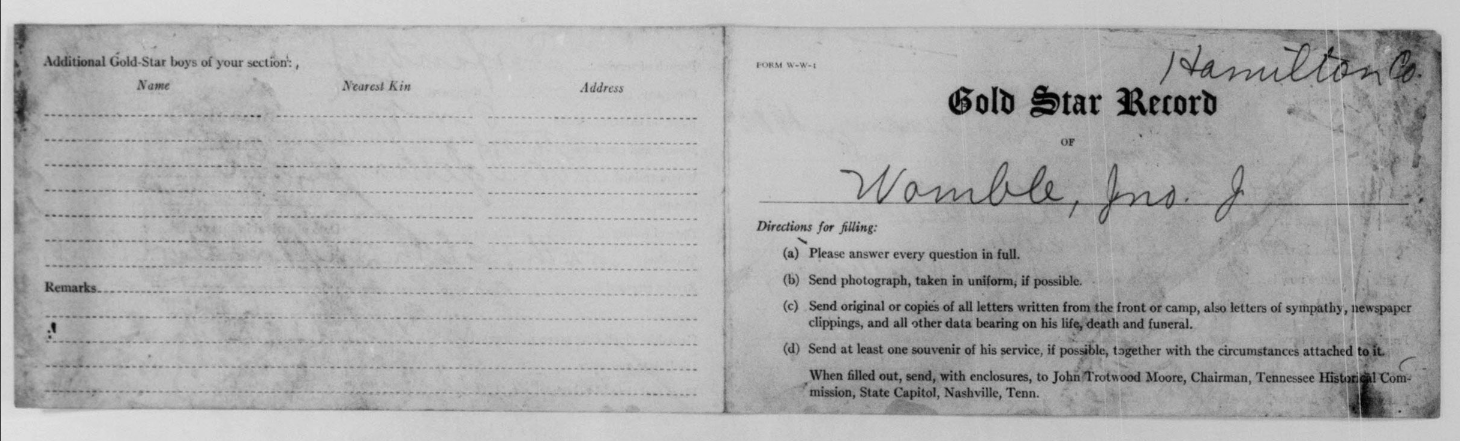 Additional Gold-Star boys of your section:,
Name Nearest Kin Address
Remarks
FORM W-W-1
Hamilton Co.
Gold Star Record
OF
Womble, Jno. J
Directions for filling:
(a) Please answer every question in full.
(b) Send photograph, taken in uniform, if possible.
(c) Send original or copies of all letters written from the front or camp, also letters of sympathy, newspaper
clippings, and all other data bearing on his life, death and funeral.
(d) Send at least one souvenir of his service, if possible, together with the circumstances attached to it.
When filled out, send, with enclosures, to John Trotwood Moore, Chairman, Tennessee Historical Com-
mission, State Capitol, Nashville, Tenn.